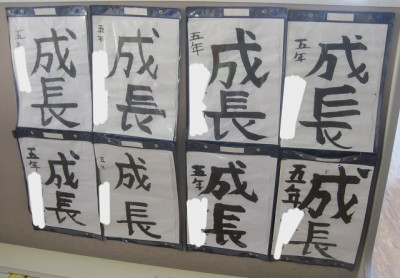 五年 成長
五年 成長
五年 成長
五年 成長
五年 成長
五年 成長
五年 成長
五年 成長